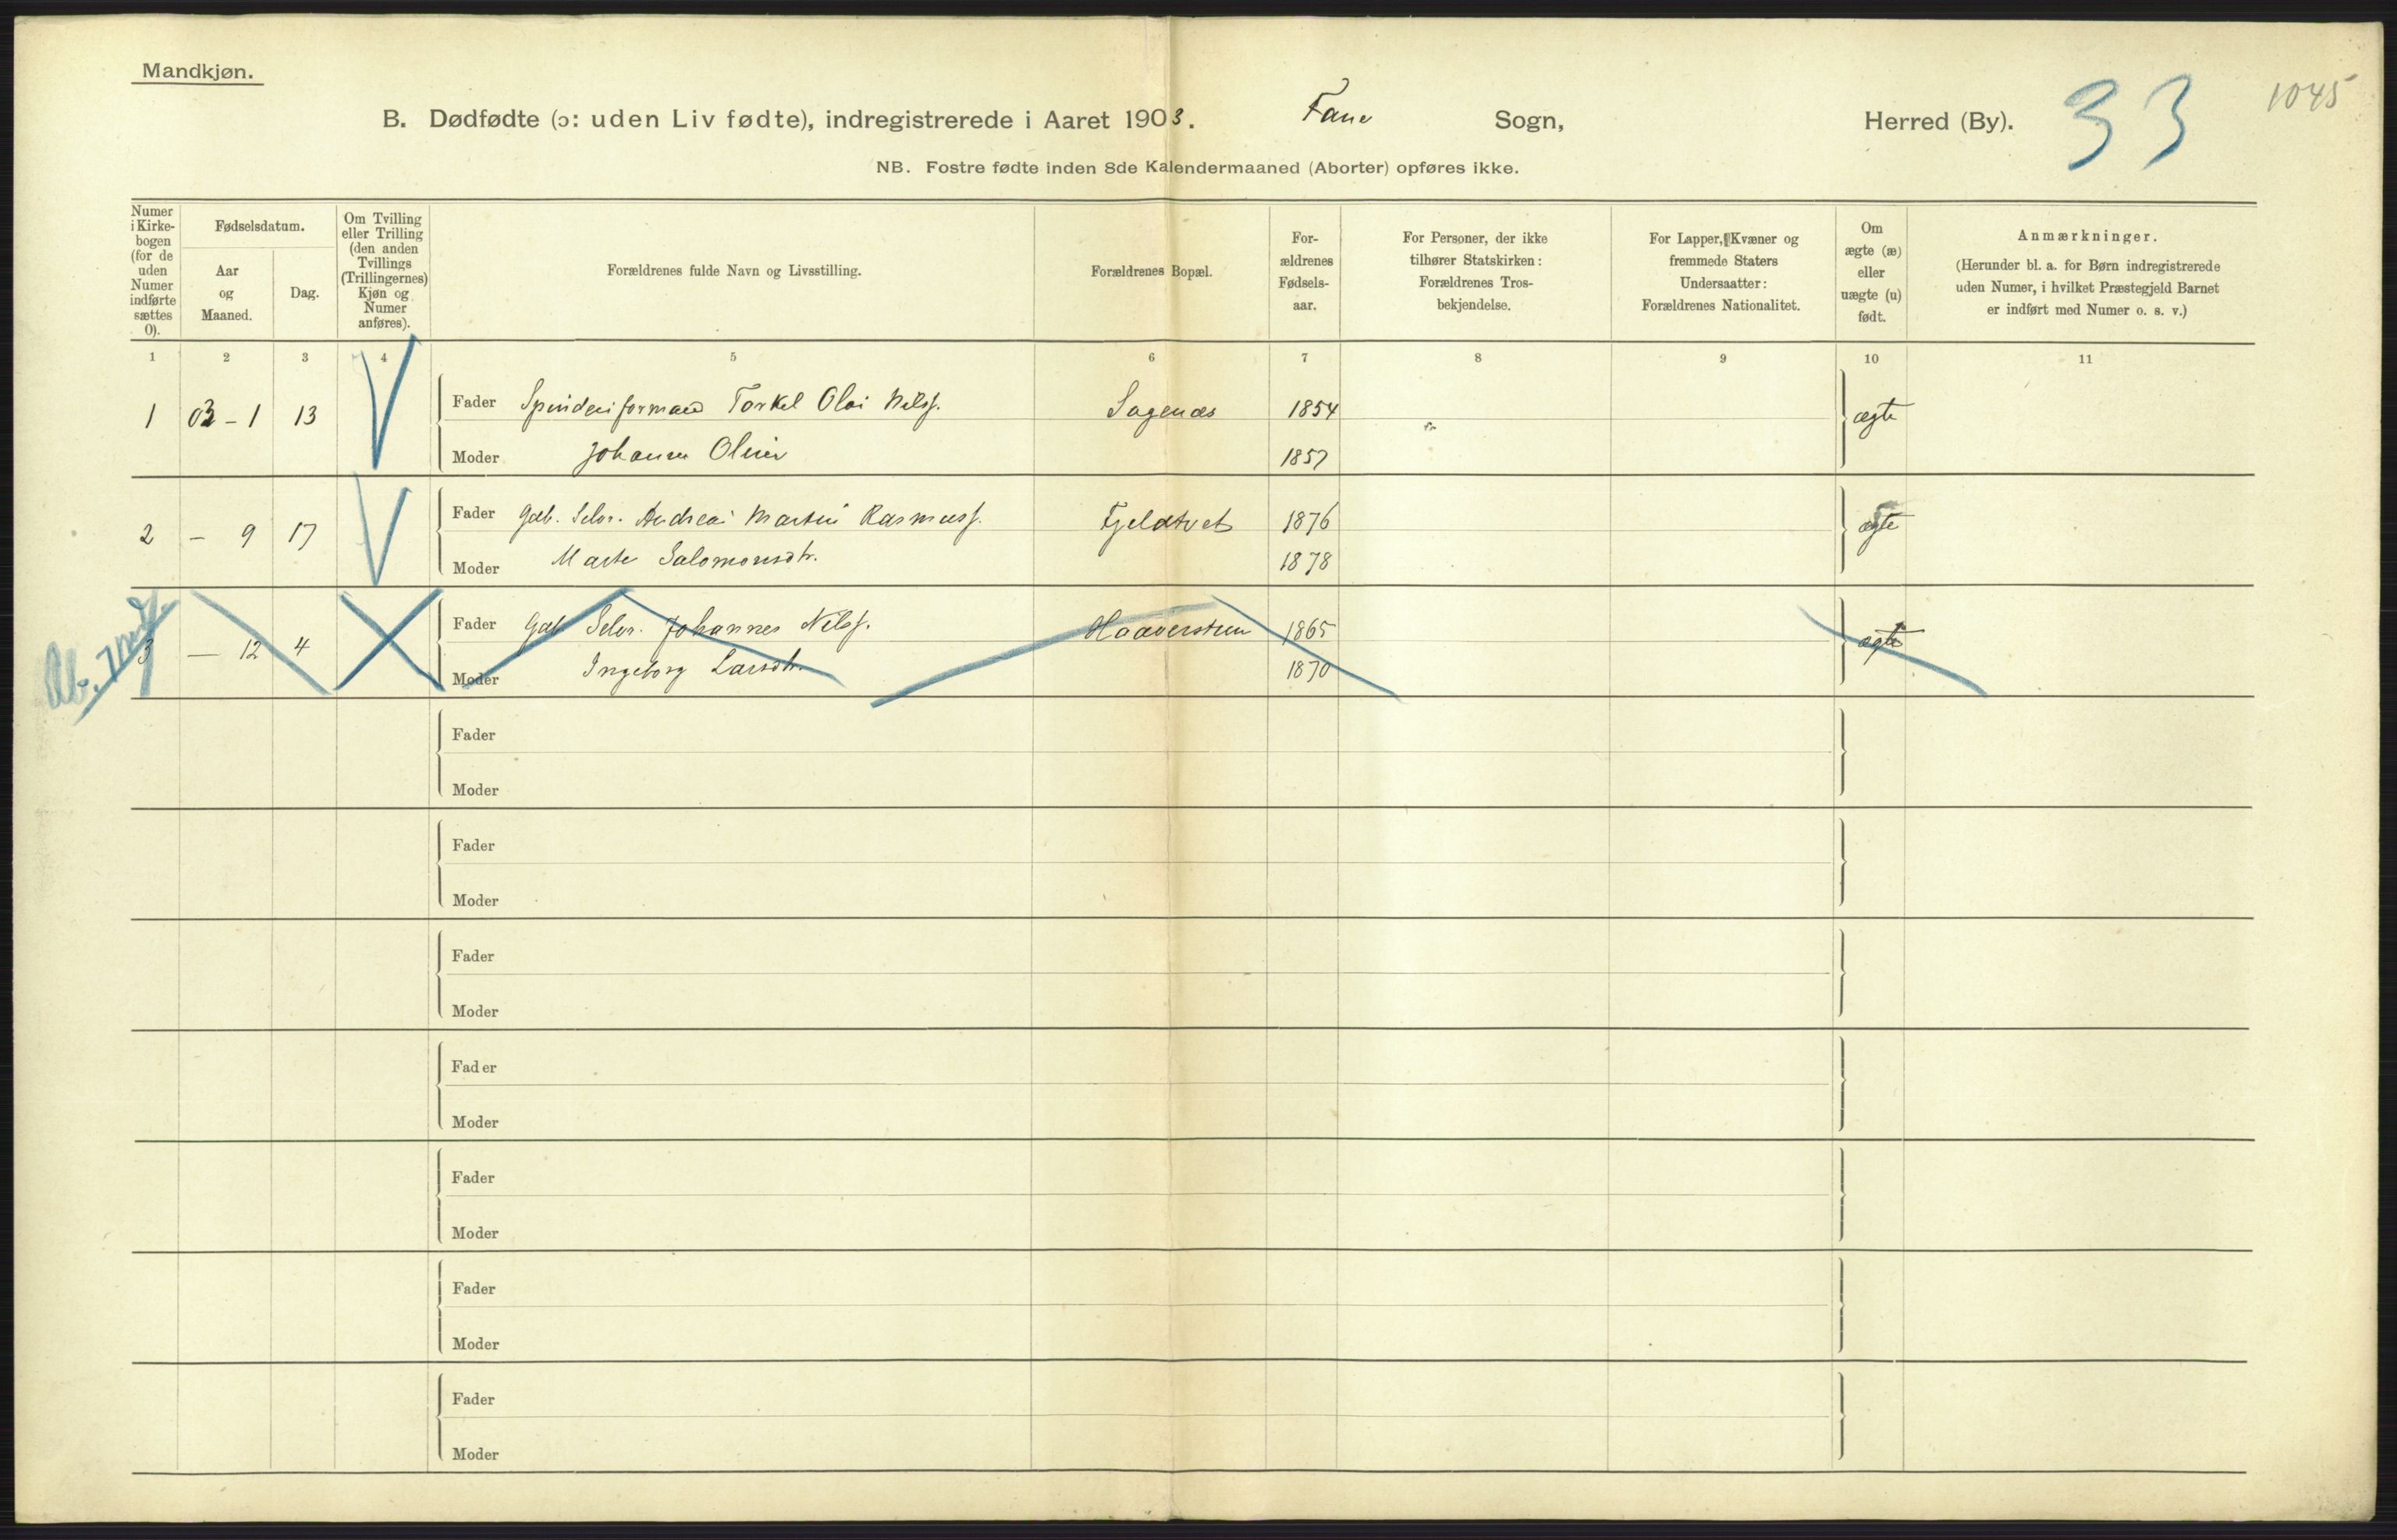 Mandkjøn.
B. Dødfødte (ɔ: uden Liv fødte), indregistrerede i Aaret 1903. Fane Sogn, Herred (By). 33 1045
NB. Fostre fødte inden 8de Kalendermaaned (Aborter) opføres ikke.
Numer i Kirkebogen (for de uden Numer indførte sættes 0).
Fødselsdatum.
Aar og Maaned.
Dag.
Om Tvilling eller Trilling (den anden Tvillings (Trillingernes) Kjøn og Numer anføres).
Forældrenes fulde Navn og Livsstilling.
Forældrenes Bopæl.
Forældrenes Fødselsaar.
For Personer, der ikke tilhører Statskirken: Forældrenes Trosbekjendelse.
For Lapper, Kvæner og fremmede Staters Undersaatter: Forældrenes Nationalitet.
Om ægte (æ) eller uægte (u) født.
Anmærkninger.
(Herunder bl. a. for Børn indregistrerede uden Numer, i hvilket Præstegjeld Barnet er indført med Numer o. s. v.)
1 2 3 4 5 6 7 8 9 10 11
1 03-1 13 Fader Spinderiformand Torkel Olai Nilsf. Sagenæs 1854 ægte
Moder Johanne Oline 1857
2 - 9 17 Fader Gdb. Selv. Andreas Martin Rasmusf. Fjeldtvet 1876 ægte
Moder Marte Salomonsdtr. 1878
3 - 12 4 Fader Gdb. Selv. Johannes Nilsf. Haaverstun 1865 ægte
Moder Ingeborg Larsdtr. 1870
Fader
Moder
Fader
Moder
Fader
Moder
Fader
Moder
Fader
Moder
Fader
Moder
Fader
Moder